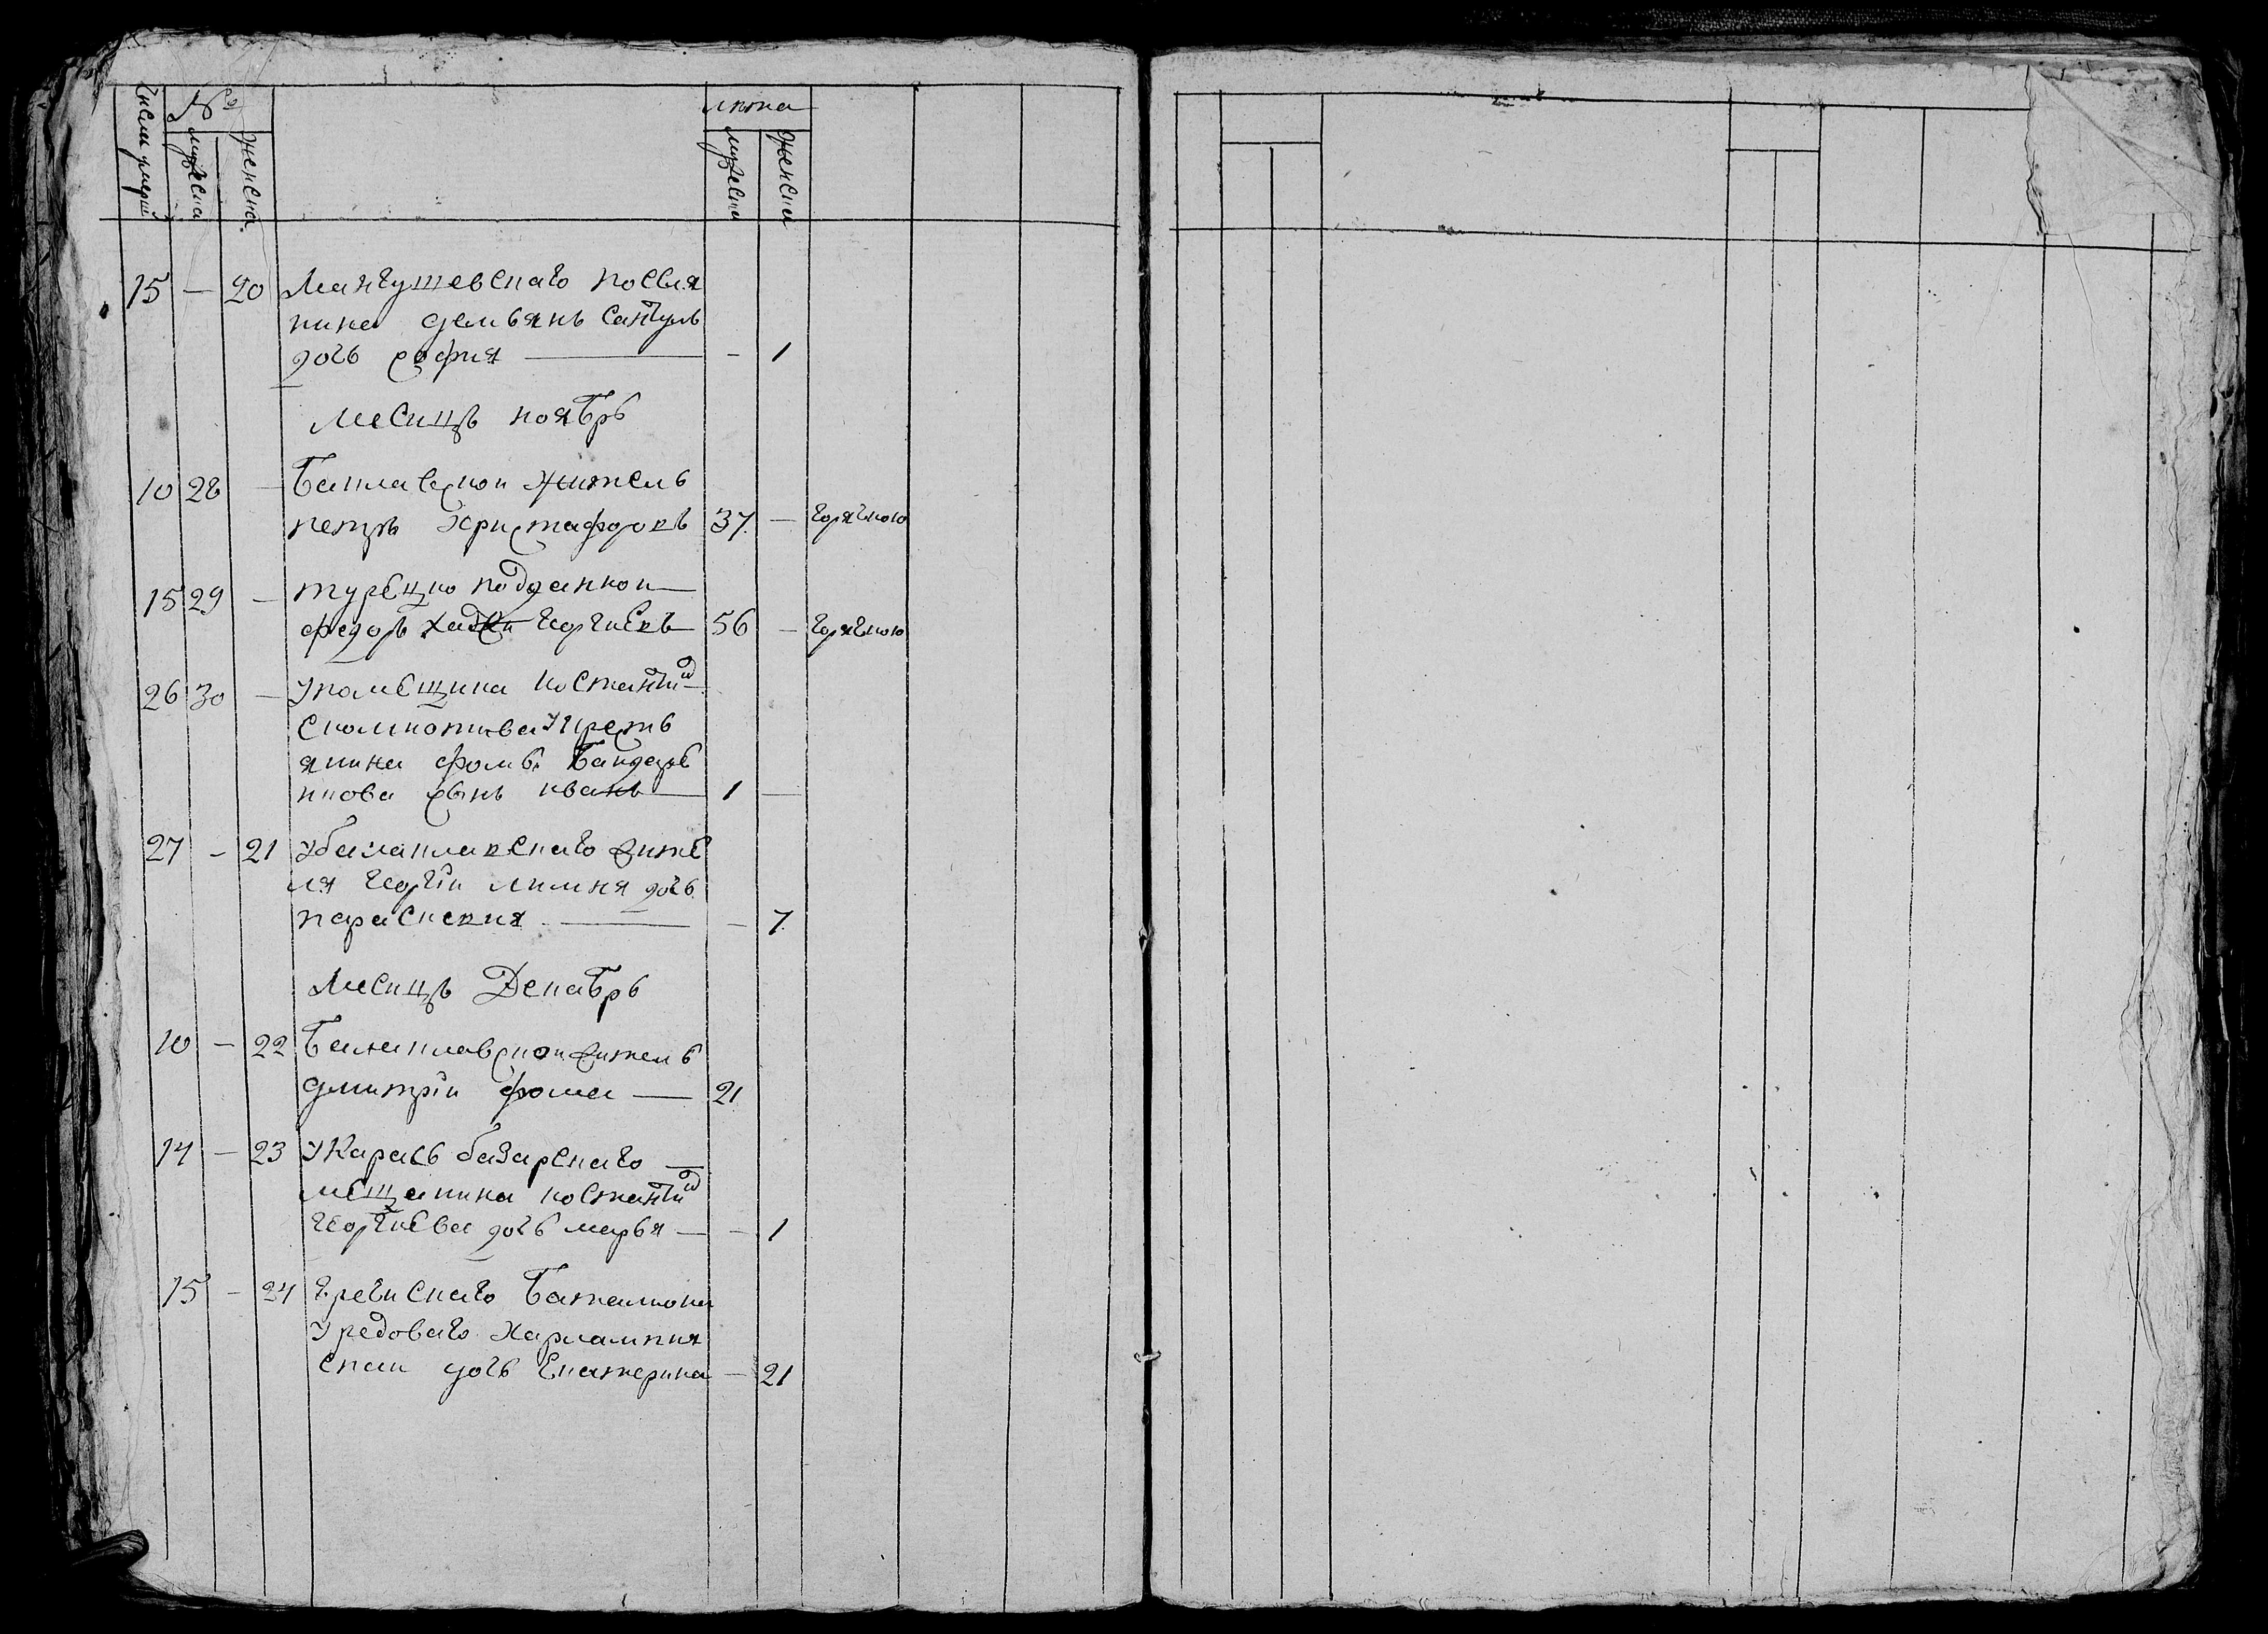 №
лѣта
мужеска
женска
мужеска
женска
15 — 20 Мангушевскаго поселя
нина демьянъ Сангулъ
дочь софия — 1
Месицъ ноябрь
10 28 — Баклавской житель
петръ Христафоровъ 37 — горячкою
15 29 — турецко поданной
федоръ хаджи георгиевъ 56 — горячкою
26 30 — У помещика костантия
кресть
янина фомы
сынъ иванъ 1 —
27 — 21 У балаклавскаго жите
ля георгiи дочь
парасковия — 7
Месицъ Декабрь
10 — 22 Балаклавской житель
дмитрiи фома — 21
14 — 23 У Карасъ базарскаго —
мещанина костантиа
георгиева дочь марья — — 1
15 — 24 греческаго баталиона
У редоваго Харлампия
дочь Екатерина — 21